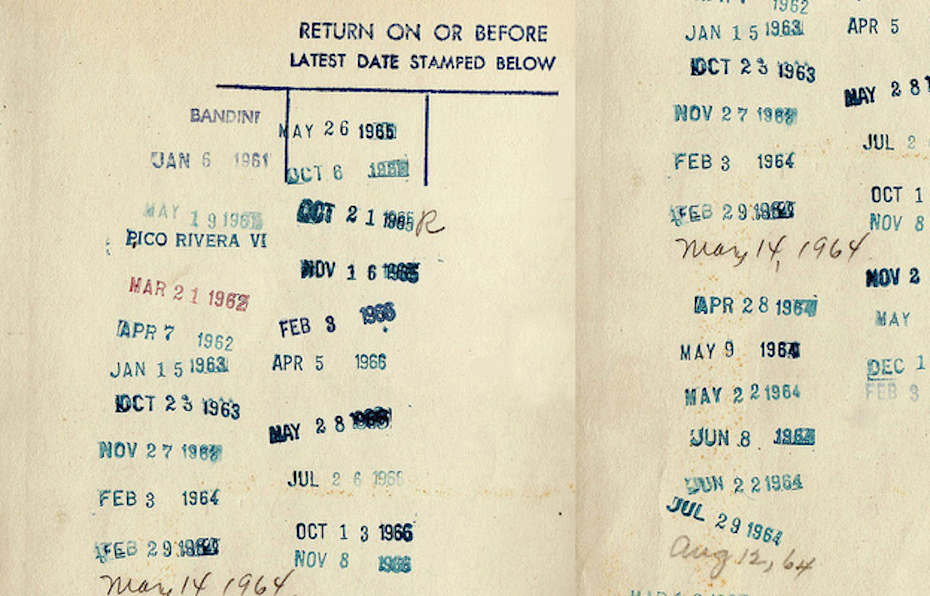 RETURN ON OR BEFORE
LATEST DATE STAMPED BELOW
BANDINI
JAN 6 1961
MAY 19 1961
PICO RIVERA VI
MAR 21 1962
APR 7 1962
JAN 15 1963
OCT 23 1963
NOV 27 1963
FEB 3 1964
FEB 29 1964
May 14 1964
MAY 26 1965
OCT 6 1965
OCT 21 1965 R
NOV 16 1965
FEB 3 1966
APR 5 1966
MAY 28 1966
JUL 26 1966
OCT 13 1966
NOV 8 1966
1962
JAN 15 1963
OCT 23 1963
NOV 27 1963
FEB 3 1964
FEB 29 1964
May 14, 1964
APR 28 1964
MAY 9 1964
MAY 22 1964
JUN 8 1964
JUN 22 1964
JUL 29 1964
Aug 12, 64
APR 5
MAY 28 1
JUL 2
OCT 1
NOV 8
NOV 2
MAY
DEC 1
FEB 3